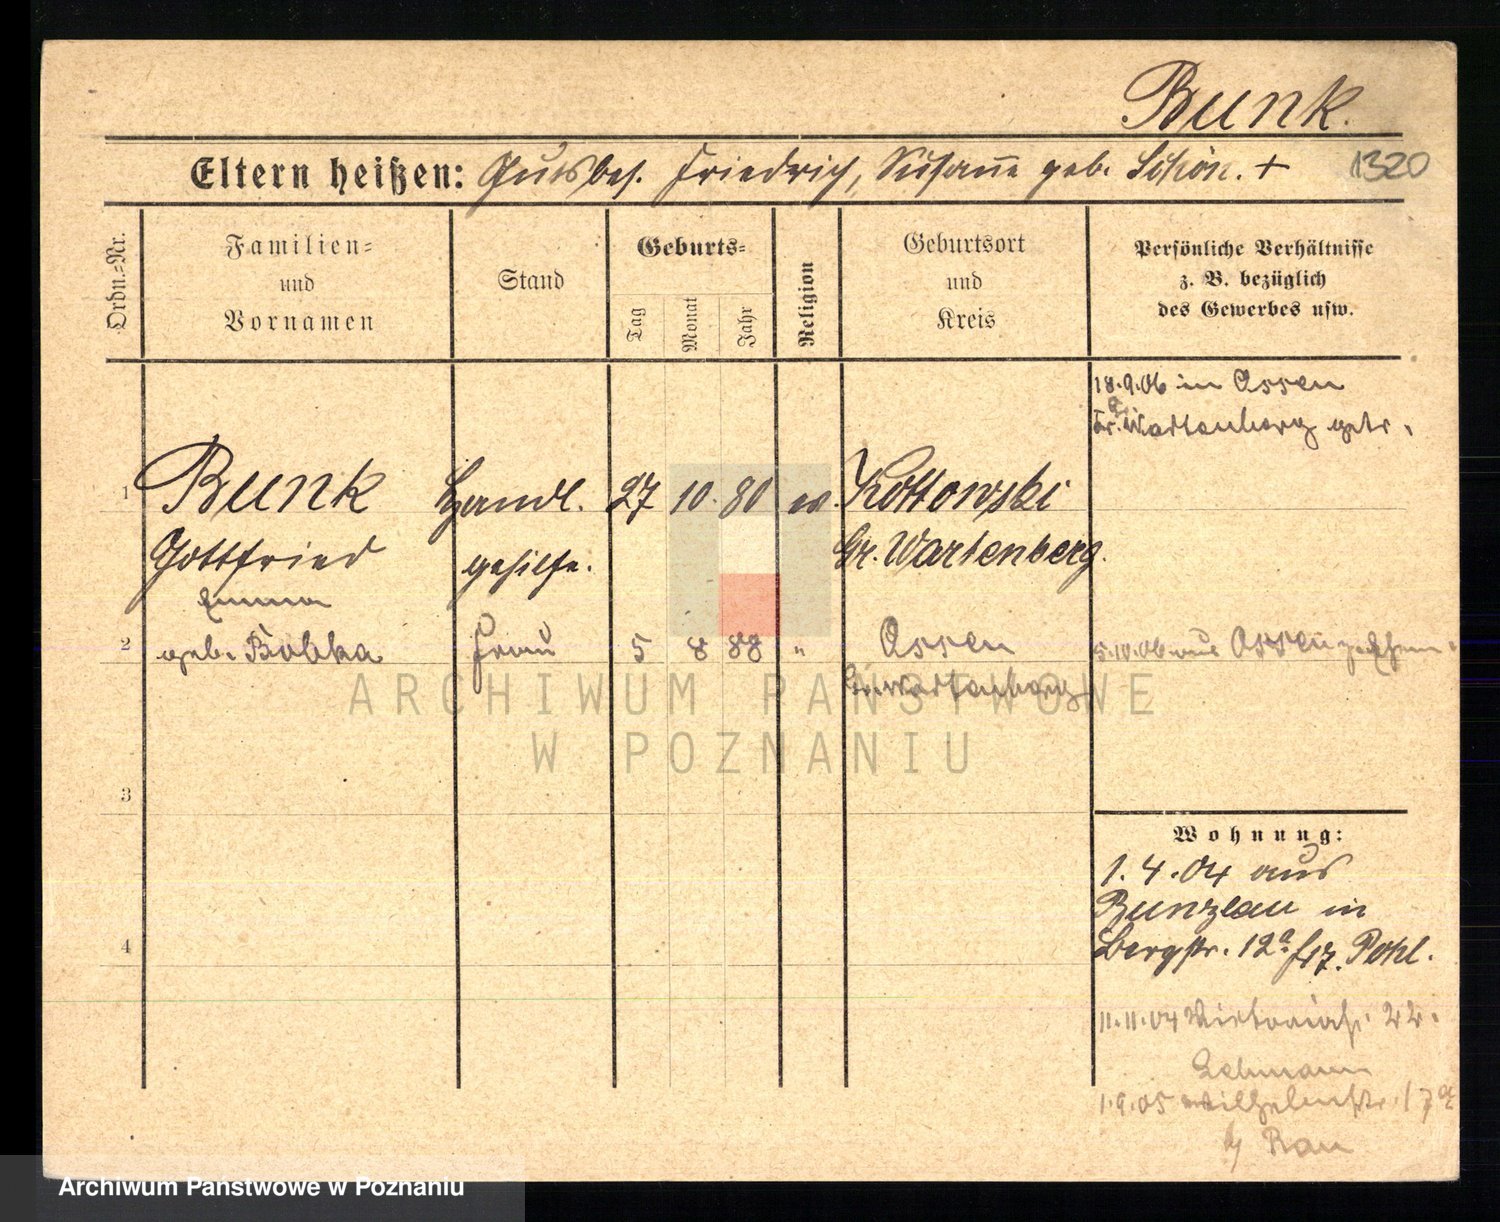 Bunk.
Eltern heißen: Gutsbes. Friedrich, Susanne geb. Schön. + 1320
Ordn.=Nr.
Familien=
und
Vornamen
Stand
Geburts=
Tag
Monat
Jahr
Religion
Geburtsort
und
Kreis
Persönliche Verhältnisse
z. B. bezüglich
des Gewerbes usw.
18.9.06 in Ossen
Kr. Gr. Wartenberg getr.
1 Bunk Handl. 27 10. 80 ev. Kottowski
Gottfried gehilfe. Gr. Wartenberg.
Emma
2 geb. Bobka Frau 5 8 88 " Ossen 5.10.06 aus Ossen z. Ehem.
Gr. Wartenberg
ARCHIWUM PAŃSTWOWE
W POZNANIU
3
Wohnung:
1.4.04 aus
Bunzlau in
Bergstr. 12a Pohl.
4
11.11.04 Victoriastr. 22.
Lehmann
1.9.05 Wilhelmstr. 17a
b/ Rau
Archiwum Państwowe w Poznaniu